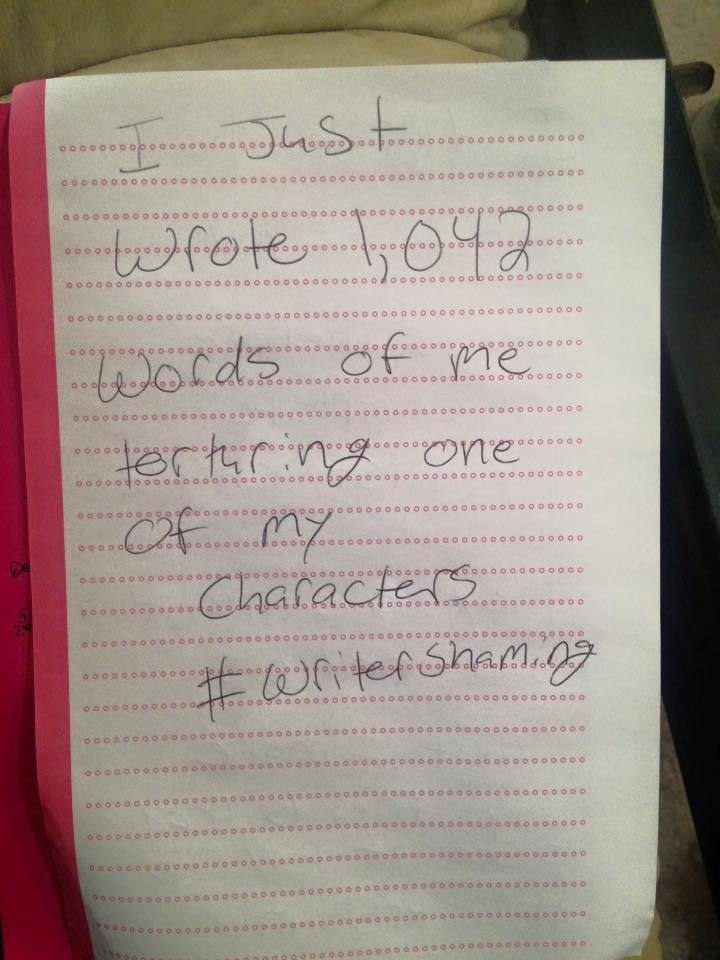 I Just
Wrote 1,042
Words of me
torturing one
Of my
Characters
#WriterShaming